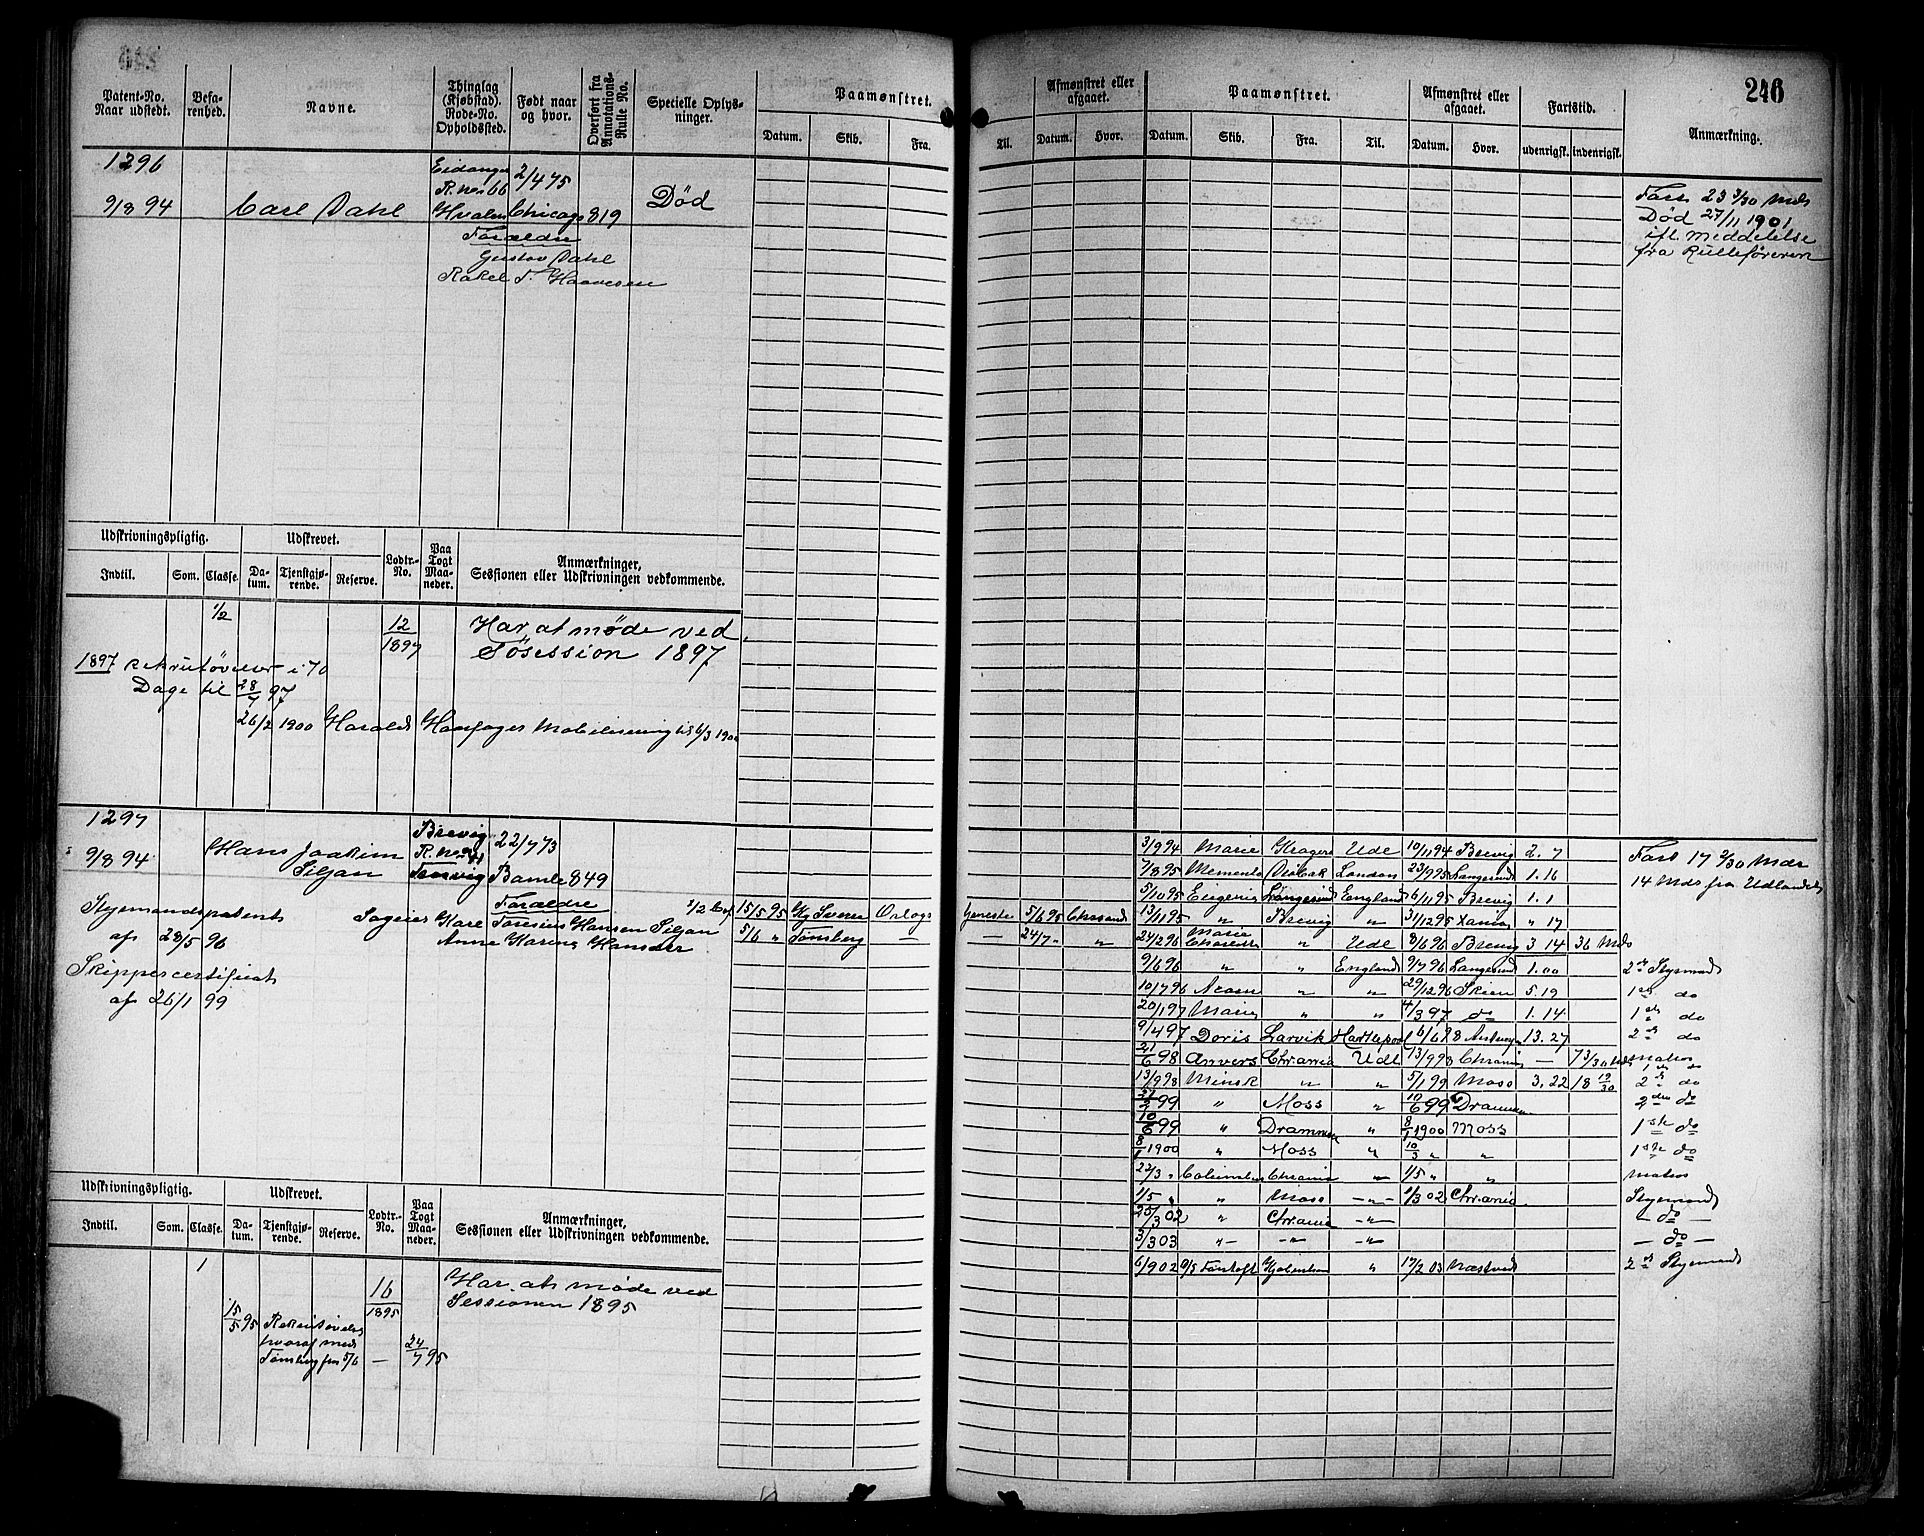 246
Patent-No.
Naar udstedt.
Befa-
renhed.
Navne.
Thinglag
(Kjøbstad).
Rode-No.
Opholdssted.
Født naar
og hvor.
Overført fra
Annotations-
Rulle No.
Specielle Oplys-
ninger.
Paamønstret.
Datum.
Skib.
Fra.
Til.
Afmønstret eller
afgaaet.
Datum.
Hvor.
Paamønstret.
Datum.
Skib.
Fra.
Til.
Afmønstret eller
afgaaet.
Datum.
Hvor.
Fartstid.
udenrigsk.
indenrigsk.
Anmærkning.
1296
9/8 94
Carl Dahl
Eidanger
R. no 66
2/4 75
Chicago
819
Død
Forældre
Gustav Dahl
Rakel T. Haavesen
Fart 23 3/30 Mds
Død 27/11 1901
ifl. Meddelelse
fra Rulleføreren
Udskrivningspligtig.
Udskrevet.
Lodtr.-
No.
Paa
Togt
Maa-
neder.
Anmærkninger,
Sessionen eller Udskrivningen vedkommende.
Indtil.
Som.
Classe.
Da-
tum.
Tjenstgjø-
rende.
Reserve.
1/2
12
1897
Har at møde ved
Søsession 1897
1897 Rekrutøvelser i 70
Dage til 28/7 97
26/2 1900 Harald Haarfager Mobilisering til 6/3 1900
1297
9/8 94
Hans Joakim
Siljan
Brevig
22/7 73
Bamle
849
Forældre
Toresius Hansen Siljan
Anne Karine Hansdtr
Styrmandspatent
af 28/5 96
Skippercertificat
af 26/1 99
15/5 95 Kg Sverre Orlogs tjeneste 5/6 95 Chrsand
5/6 " Tønsberg — — 24/7 " "
3/9 94 Marie Kragerø Udl 10/11 94 Brevig 2. 7
7/8 95 Memento Drøbak London 23/9 95 Langesund 1. 16
5/10 95 Eugenie Langesund England 6/11 95 Brevig 1. 1
13/11 95 " Brevig " 31/12 95 Xania " 17
24/2 96 Marie " Udl 8/6 96 Brevig 3 14 36 Mds
9/6 96 " " England 9/7 96 Langesund 1.00 2den Styrmand
10/7 96 " " 29/12 96 Skien 5. 19 1ste do
20/1 97 Marie " " 4/3 97 do 1. 14 1ste do
9/4 97 Doris Larvik Hartlepool 6/6 98 13. 27 2den do
21/6 98 Anvers Chrania Udl 13/9 98 Chrania — 7 3/30 Mds Matros
13/9 98 Minsk " " 5/1 99 Moss 3. 22 18 19/30 2den do
21/2 99 " Moss " 10/6 99 Drammen 2den do
10/6 99 " Drammen " 8/1 1900 Moss 1ste do
8/1 1900 " Moss " 10/3 " " 1ste do
22/3 " Columbus Chrania " 1/5 " " Matros
1/5 " " Moss — " — 1/3 02 Chrania Styrmand
25/3 02 " Chrania — " — — do —
3/3 03 " — " — — " — — do —
6/9 02 D/S Tantoft Kjøbenhavn " 17/2 03 Næstved 2den Styrmand
Fart 17 2/30 Mdr
14 Mds fra Udlandet
Udskrivningspligtig.
Udskrevet.
Lodtr.-
No.
Paa
Togt
Maa-
neder.
Anmærkninger,
Sessionen eller Udskrivningen vedkommende.
Indtil.
Som.
Classe.
Da-
tum.
Tjenstgjø-
rende.
Reserve.
1
16
1895
Har at møde ved
Sessionen 1895
15/5 95 Rekrutøvelse
hvoraf med
Tønsberg fra 5/6 — 24/7 95